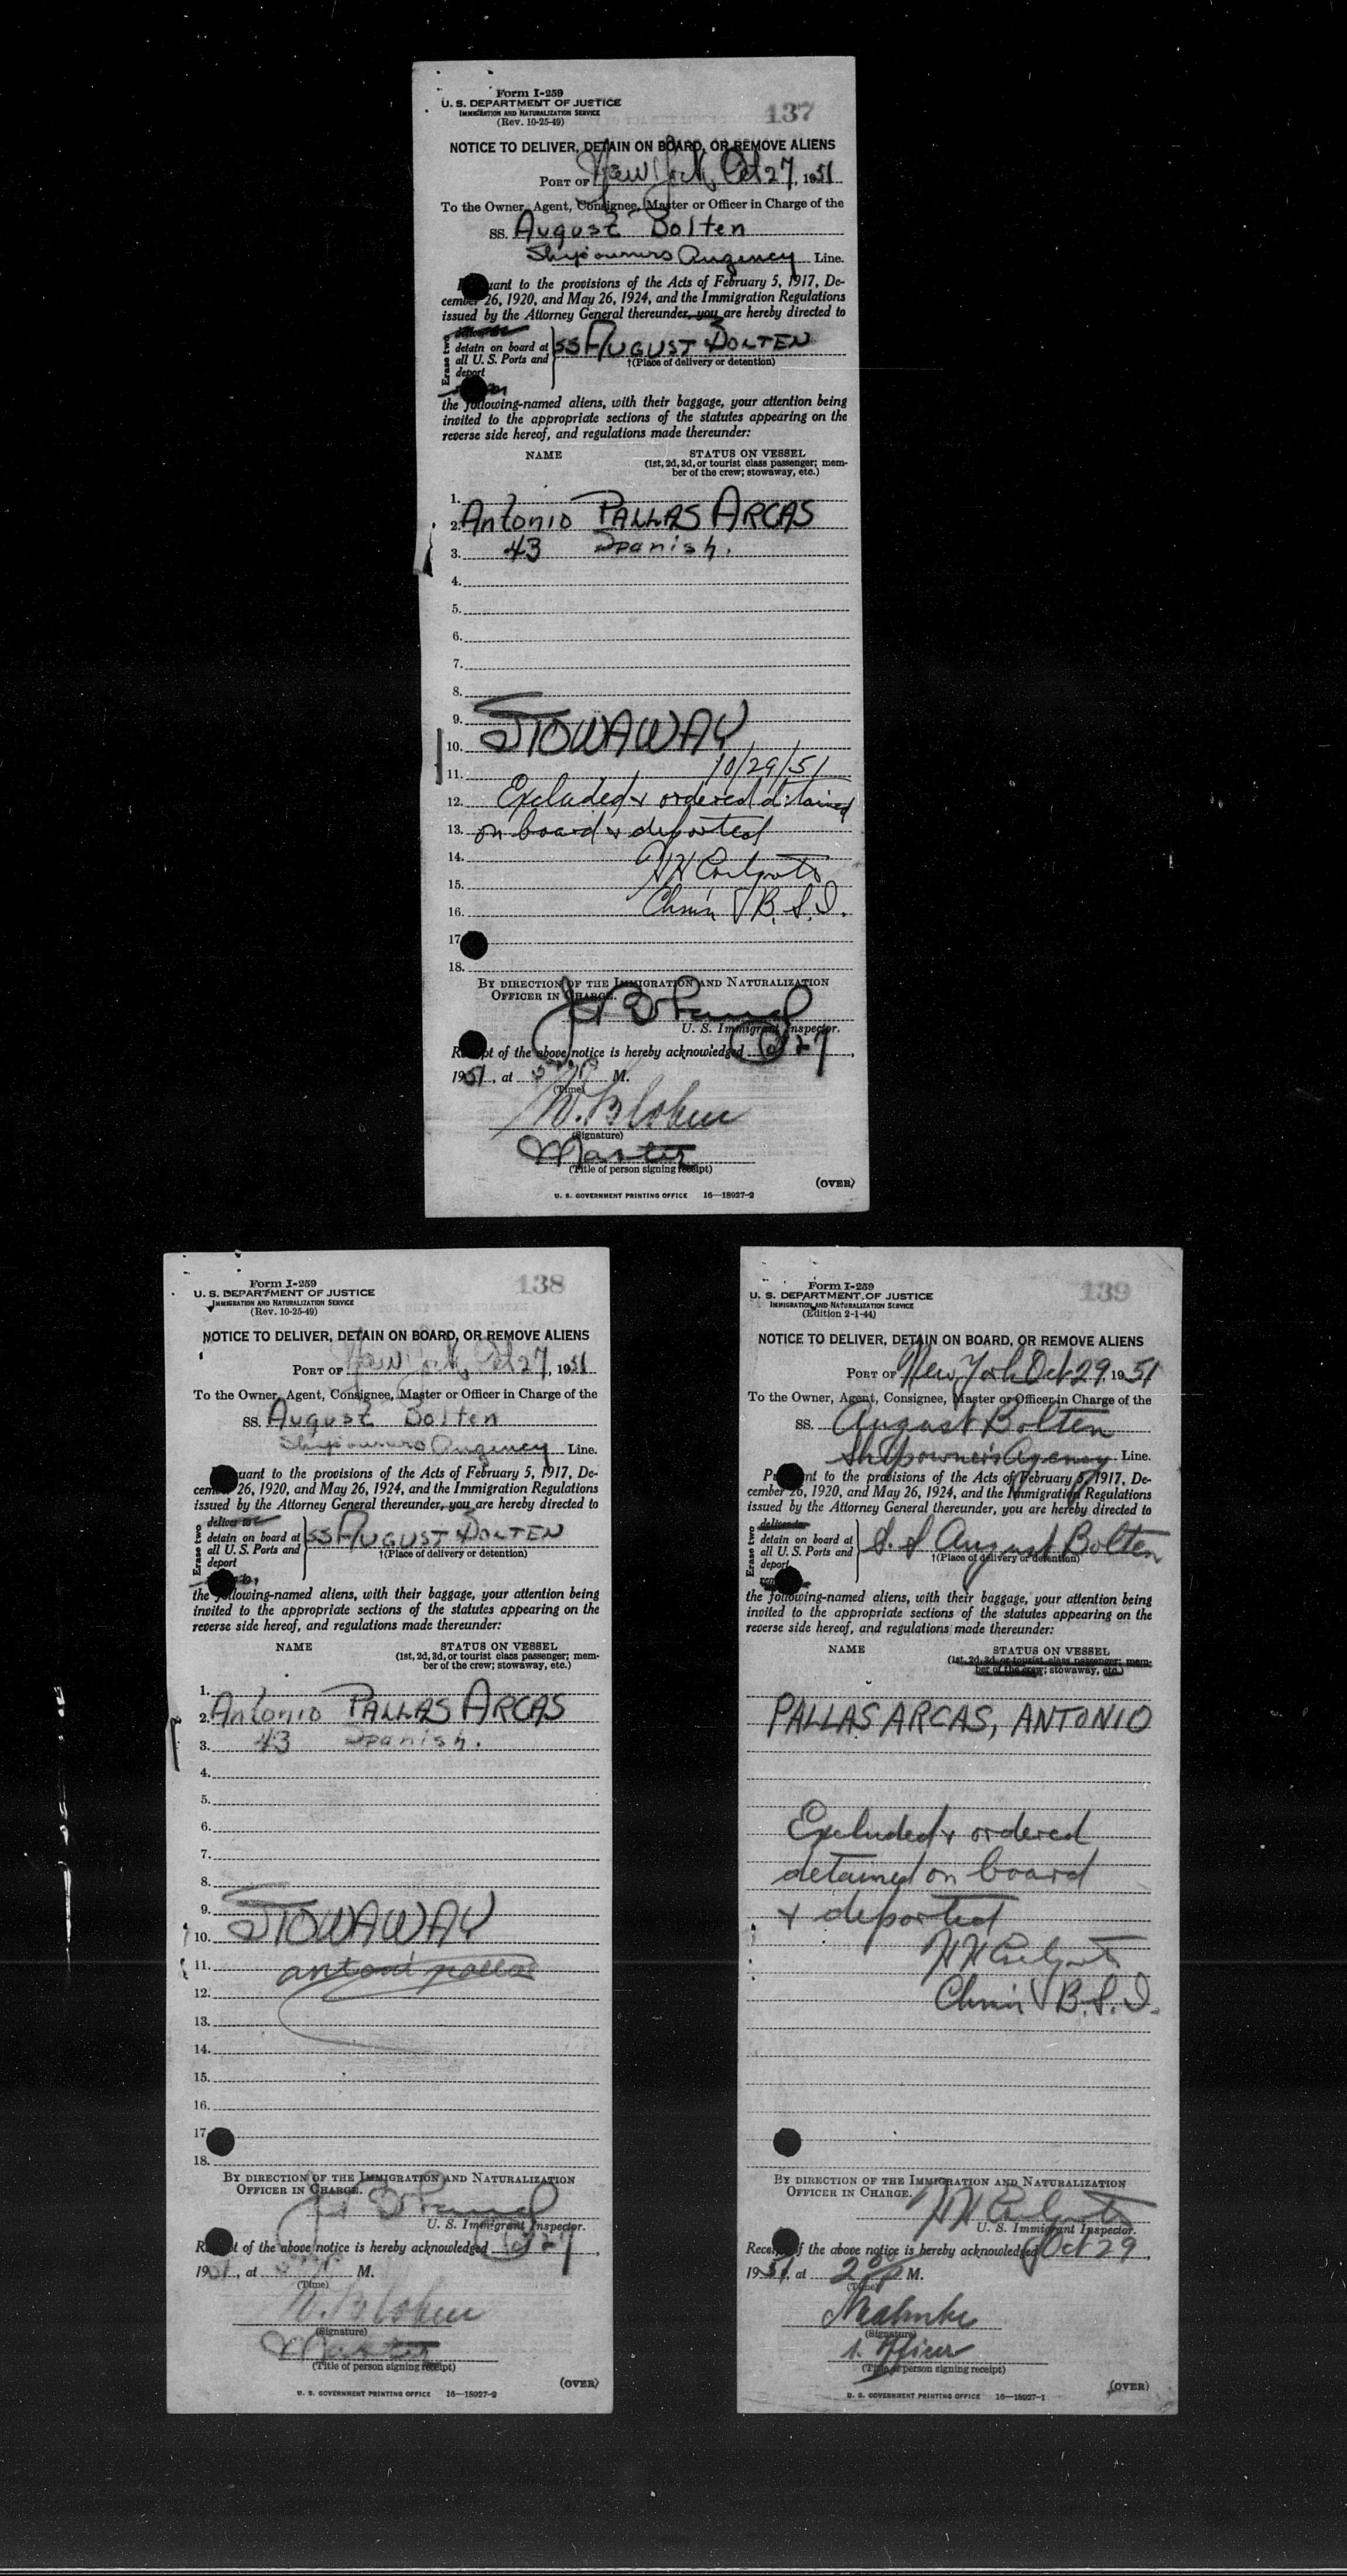 Form I-259
U. S. DEPARTMENT OF JUSTICE
IMMIGRATION AND NATURALIZATION SERVICE
(Rev. 10-25-49)
137
NOTICE TO DELIVER, DETAIN ON BOARD, OR REMOVE ALIENS
PORT OF New York, Oct 27, 1951
To the Owner, Agent, Consignee, Master or Officer in Charge of the
SS. August Bolten
Shipowners Augency Line.
uant to the provisions of the Acts of February 5, 1917, De-
cember 26, 1920, and May 26, 1924, and the Immigration Regulations
issued by the Attorney General thereunder, you are hereby directed to
Erase two
detain on board at
all U. S. Ports and
deport
SS AUGUST BOLTEN
†(Place of delivery or detention)
the following-named aliens, with their baggage, your attention being
invited to the appropriate sections of the statutes appearing on the
reverse side hereof, and regulations made thereunder:
NAME STATUS ON VESSEL
(1st, 2d, 3d, or tourist class passenger; mem-
ber of the crew; stowaway, etc.)
1.
2. Antonio PALLAS ARCAS
3. 43 Spanish.
4.
5.
6.
7.
8.
9.
10. STOWAWAY
11. 10/29/51
12. Excluded & ordered detained
13. on board & deported
14.
15.
16. Chmn B.S.I.
17
18.
BY DIRECTION OF THE IMMIGRATION AND NATURALIZATION
OFFICER IN CHARGE.
U. S. Immigrant Inspector.
Receipt of the above notice is hereby acknowledged Oct 27,
1951, at 5 P M.
(Time)
(Signature)
Master
(Title of person signing receipt)
(OVER)
U. S. GOVERNMENT PRINTING OFFICE 16—18927-2
Form I-259
U. S. DEPARTMENT OF JUSTICE
IMMIGRATION AND NATURALIZATION SERVICE
(Rev. 10-25-49)
138
NOTICE TO DELIVER, DETAIN ON BOARD, OR REMOVE ALIENS
PORT OF New York, Oct 27, 1951
To the Owner, Agent, Consignee, Master or Officer in Charge of the
SS. August Bolten
Shipowners Augency Line.
uant to the provisions of the Acts of February 5, 1917, De-
cember 26, 1920, and May 26, 1924, and the Immigration Regulations
issued by the Attorney General thereunder, you are hereby directed to
Erase two
deliver to
detain on board at
all U. S. Ports and
deport
SS AUGUST BOLTEN
†(Place of delivery or detention)
the following-named aliens, with their baggage, your attention being
invited to the appropriate sections of the statutes appearing on the
reverse side hereof, and regulations made thereunder:
NAME STATUS ON VESSEL
(1st, 2d, 3d, or tourist class passenger; mem-
ber of the crew; stowaway, etc.)
1.
2. Antonio PALLAS ARCAS
3. 43 Spanish.
4.
5.
6.
7.
8.
9.
10. STOWAWAY
11.
12.
13.
14.
15.
16.
17
18.
BY DIRECTION OF THE IMMIGRATION AND NATURALIZATION
OFFICER IN CHARGE.
U. S. Immigrant Inspector.
Receipt of the above notice is hereby acknowledged Oct 27,
1951, at 5 P M.
(Time)
(Signature)
Master
(Title of person signing receipt)
(OVER)
U. S. GOVERNMENT PRINTING OFFICE 16—18927-2
Form I-259
U. S. DEPARTMENT OF JUSTICE
IMMIGRATION AND NATURALIZATION SERVICE
(Edition 2-1-44)
139
NOTICE TO DELIVER, DETAIN ON BOARD, OR REMOVE ALIENS
PORT OF New York Oct 29, 1951
To the Owner, Agent, Consignee, Master or Officer in Charge of the
SS. August Bolten
Shipowners Agency Line.
Pursuant to the provisions of the Acts of February 5, 1917, De-
cember 26, 1920, and May 26, 1924, and the Immigration Regulations
issued by the Attorney General thereunder, you are hereby directed to
Erase two
detain on board at
all U. S. Ports and
deport
S. S August Bolten
†(Place of delivery or detention)
the following-named aliens, with their baggage, your attention being
invited to the appropriate sections of the statutes appearing on the
reverse side hereof, and regulations made thereunder:
NAME STATUS ON VESSEL
(1st, 2d, 3d, or tourist class passenger; mem-
ber of the crew; stowaway, etc.)
PALLAS ARCAS, ANTONIO
Excluded & ordered
detained on board
& deported
Chmn B.S.I.
BY DIRECTION OF THE IMMIGRATION AND NATURALIZATION
OFFICER IN CHARGE.
U. S. Immigrant Inspector.
Receipt of the above notice is hereby acknowledged Oct 29,
1951, at 2 00 P M.
(Time)
(Signature)
1. Officer
(Title of person signing receipt)
(OVER)
U. S. GOVERNMENT PRINTING OFFICE 16—18927-1